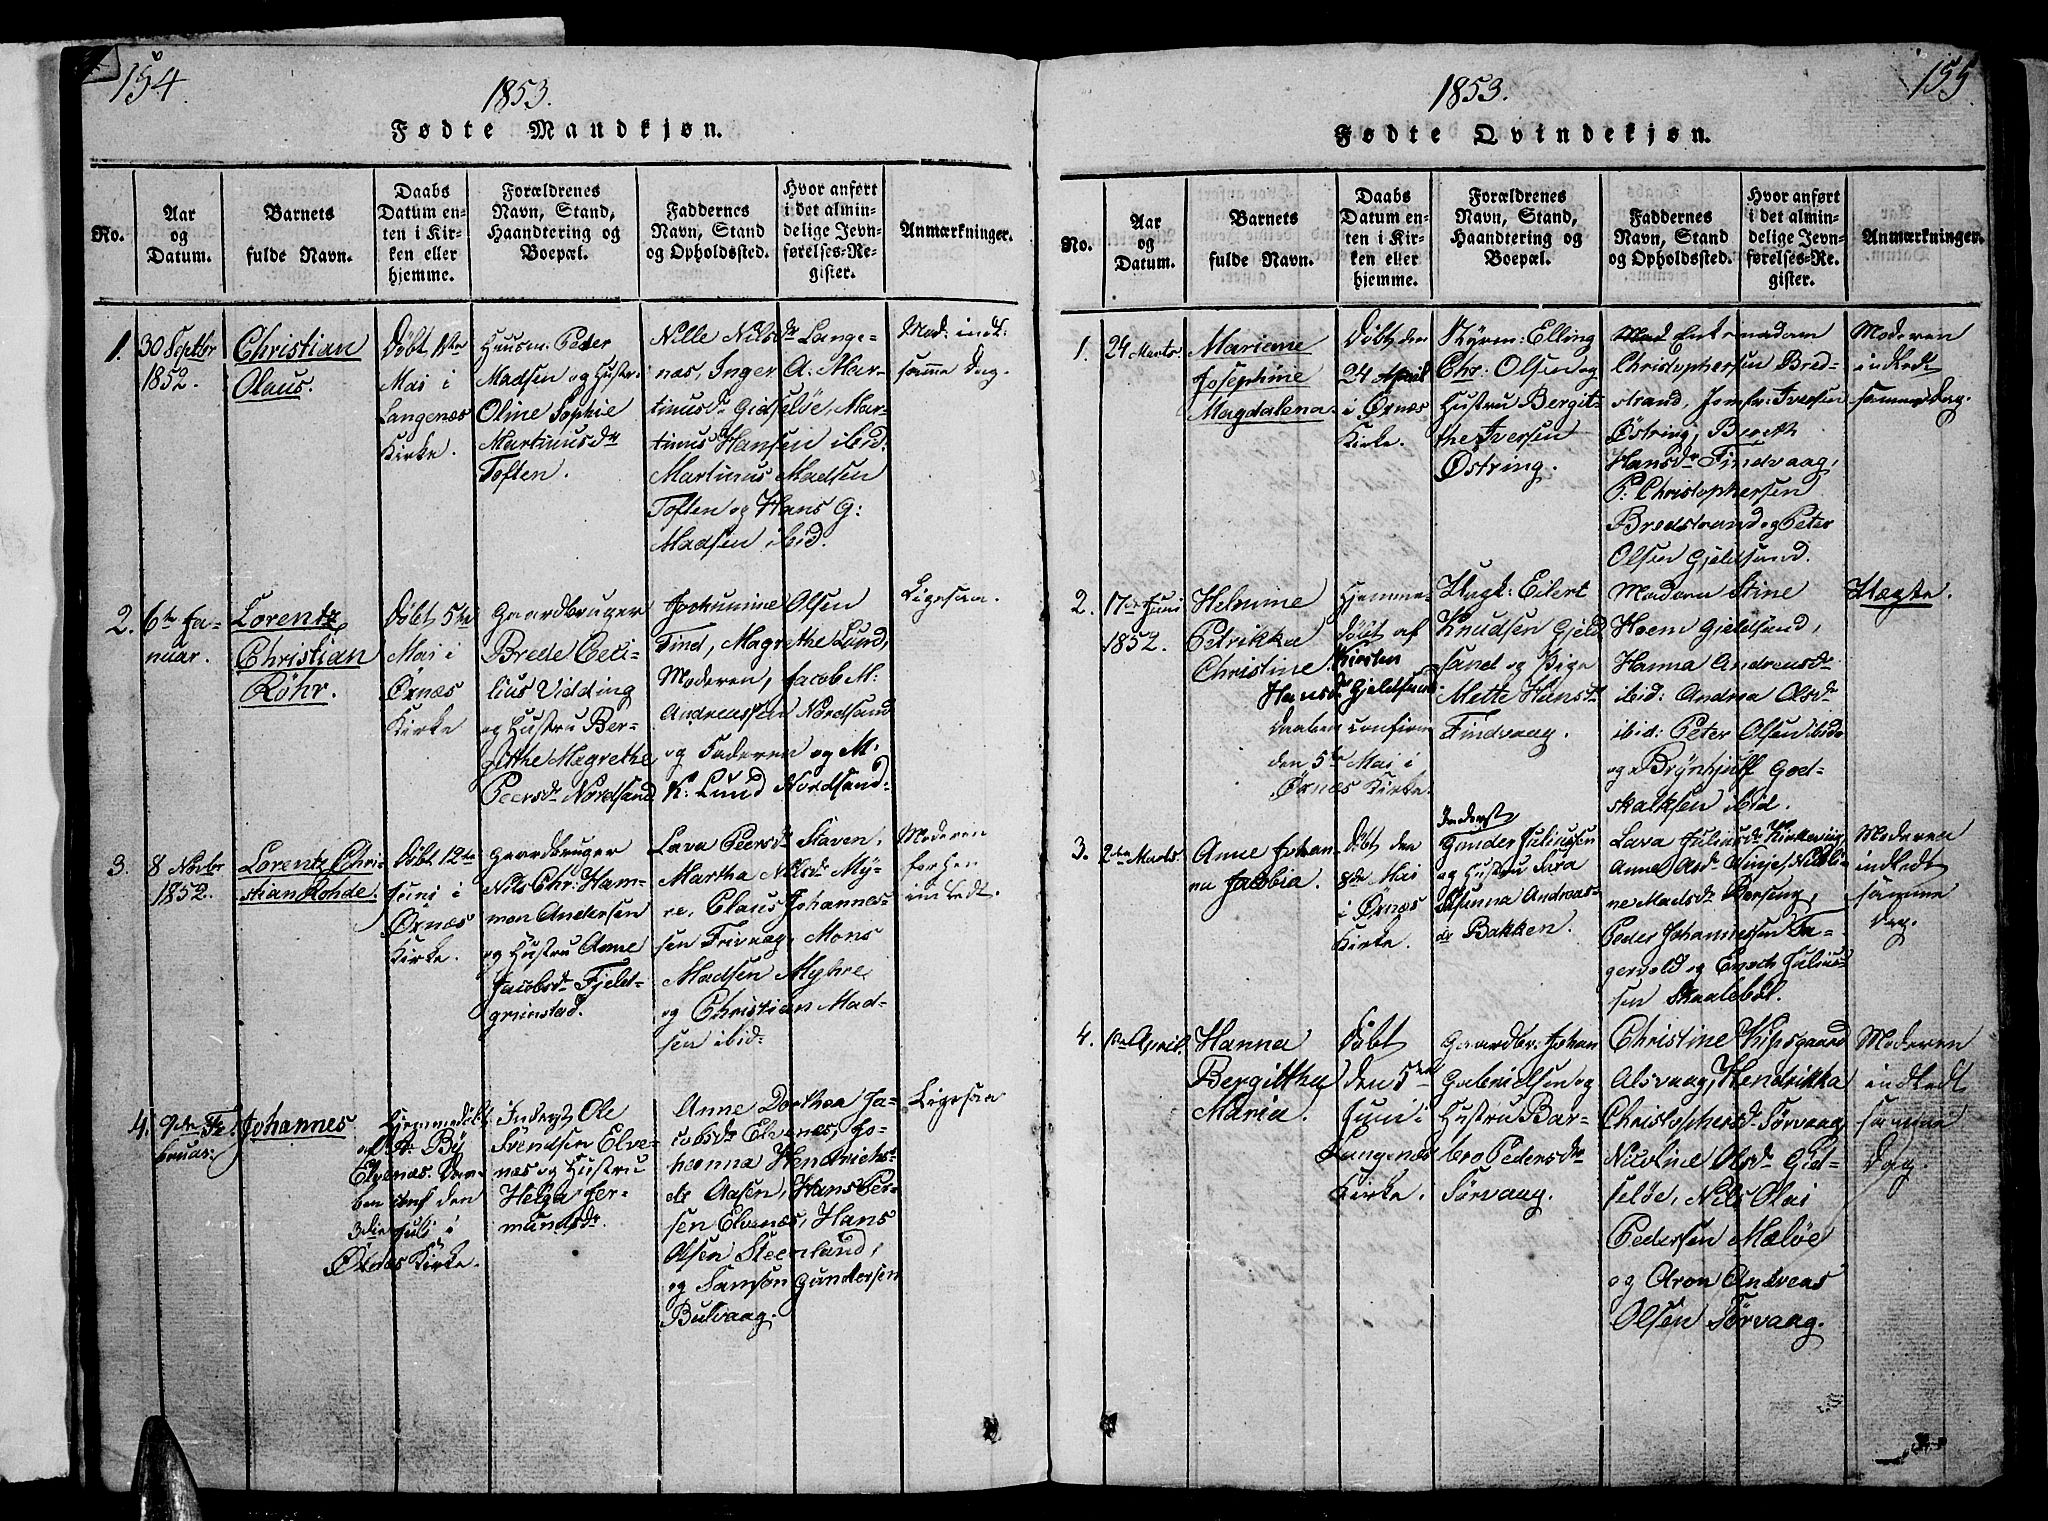 154.
1853.
Fødte Mandkjøn.
No.
Aar
og
Datum.
Barnets
fulde Navn.
Daabs
Datum en-
ten i Kir-
ken eller
hjemme.
Forældrenes
Navn, Stand,
Haandtering og
Boepæl.
Faddernes
Navn, Stand
og Opholdssted.
Hvor anført
i det almin-
delige Jevn-
førelses-Re-
gister.
Anmærkninger.
1.
30 Septbr
1852.
Christian
Olaus.
Døbt 1ste
Mai i
Langenæs
Kirke.
Huusm. Peder
Madsen og Hustru
Oline Sophie
Martinusdr
Toften.
Nille Nilsdr Lange-
næs, Inger A. Mar-
tinusdr Gidseløe, Mar-
tinus Hansen ibid.
Martinus Madsen
Toften og Hans G:
Madsen ibid.
Mod: indl:
samme Dag.
2.
6te Ja-
nuar.
Lorentz
Christian
Röhr.
Døbt 5te
Mai i
Örnæs
Kirke
Gaardbruger
Brede Ceci-
lius Vidding
og Hustru Ber-
githe Magrethe
Peersdr Nordsand
Johnnine Olsen
Tind, Magrethe Lund,
Moderen, Jacob M.
Andreassen Nordsand
og Faderen og M.
K. Lund Nordsand.
Ligesaa.
3.
8 Novbr
1852.
Lorentz Chri-
stian Rohde.
Døbt 12te
Juni i
Örnæs
Kirke.
Gaardbruger
Nils Chr. Ham-
mon Andersen
og Hustru Anne
Jacobsdr Fjeld-
grimstad.
Lava Peersdr Staven,
Martha Nilsdr My-
re, Claus Johannes-
sen Frivaag, Mons
Madsen Myhre
og Christian Mad-
sen ibid.
Moderen
forhen
indledt.
4.
9de Fe-
bruar.
Johannes
Hjemmedøbt
af A. By
Elvenæs. Daa-
ben conf den
3die Juli i
Örnæs Kirke.
Inderst Ole
Svendsen Elve-
næs og Hustru
Helga Jer-
mundsdr
Anne Dorthea Ja-
cobsdr Elvenæs, Jo-
hanna Hendrichs-
dr Aasen, Hans Per-
sen Elvenæs, Hans
Olsen Steenland,
og Samson Gundersen
Bulvaag.
Ligesaa
155
1853.
Fødte Qvindekjøn.
No.
Aar
og
Datum.
Barnets
fulde Navn.
Daabs
Datum en-
ten i Kir-
ken eller
hjemme.
Forældrenes
Navn, Stand,
Haandtering og
Boepæl.
Faddernes
Navn, Stand
og Opholdssted.
Hvor anført
i det almin-
delige Jevn-
førelses-Re-
gister.
Anmærkninger.
1.
24 Marts
Mariane
Josephine
Magdalena.
Døbt den
24 April
i Örnæs
Kirke.
Elling
Chr. Olsen og
Hustru Bergit-
the Iversen
Östring.
Enkemadam
Christophersen Bred-
strand, Jomfr. Iversen
Östring, Bereth
Hansdr Findvaag,
P. Christophersen
Bredstrand og Peter
Olsen Gjeldsund.
Moderen
indledt
samme Dag.
2.
17de Juni
1852.
Helmine
Petrikka
Christine
Hjemme-
døbt af
Kirsten
Hansdr Gjeldsund.
Daaben confirm
den 5te Mai i
Örnæs Kirke.
Ungk: Eilert
Knudsen Gjeld-
sand og Pige
Mette Hansdr
Findvaag.
Madam Stine
Hoem Gjeldsund,
Hanna Andreasdr
ibid: Andrea Olsdr
ibid: Peter Olsen ibid
og Brynhjulf God-
skalksen ibid.
Uægte.
3.
2den Marts
Anne Johan-
na Jacobia.
Døbt den
8de Mai
i Örnæs
Kirke.
Inderst
Gunder Juliussen
og Hustru Sara
Susanna Andreas-
dr Bakken.
Lava Juliusdr
ne Madsdr
Peder Johannessen Fa-
gervold og Enoch Julius-
sen Skaalebøl.
Moderen
indledt
samme
Dag.
4.
1ste April.
Hanna
Bergittha
Maria.
Døbt
den 5te
Juni i
Langenæs
Kirke.
Gaardbr. Johan
Gabrielsen og
Hustru Bar-
bro Pedersdr
Sørvaag.
Christine Kipsgaard
Alsvaag, Hendrikka
Christophersdr Sørvaag
Nicoline Olsdr Gid-
seløe, Nils Olai
Pedersen Maløe
og Aron Andreas
Olsen Sørvaag.
Moderen
indledt
samme
Dag.